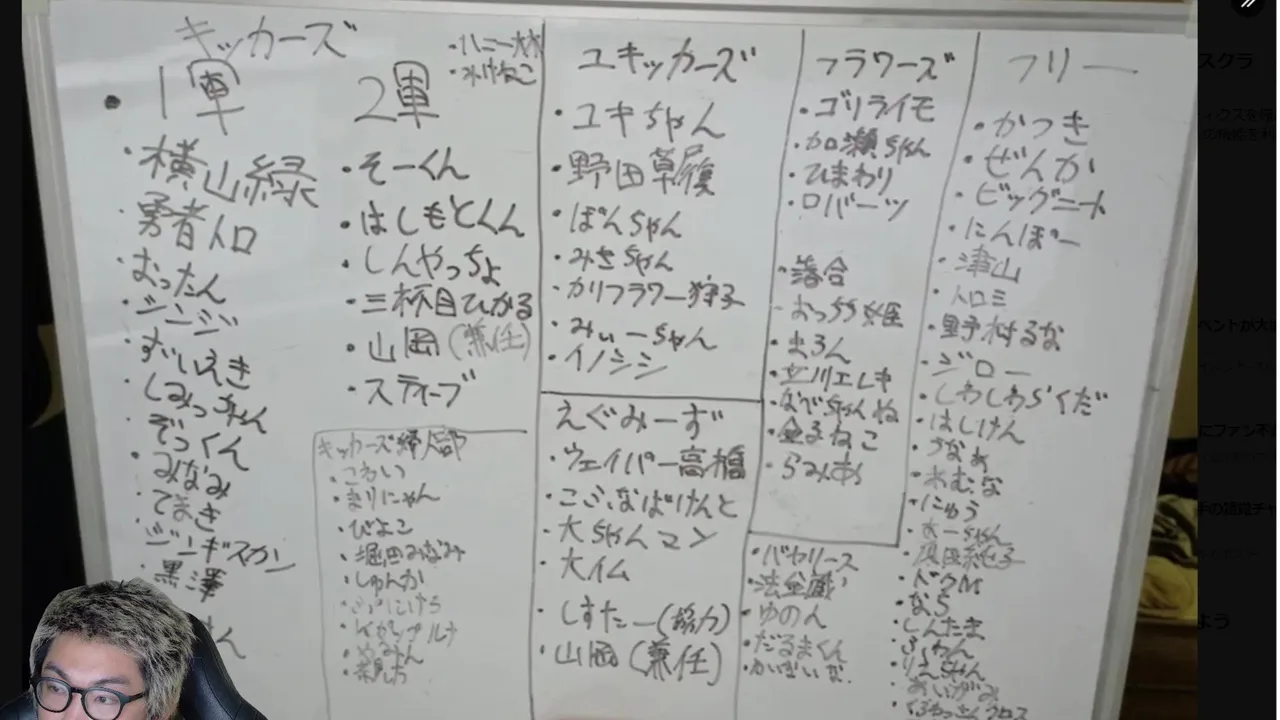 キッカーズ
・ハニー大木木
・みけねこ
・1軍
・横山緑
・勇者トロ
・おったん
・ジンジ
・ずいえき
・しみっちゃん
・ぞっくん
・みなみ
・てまき
・ジンギスカン
・黒澤
2軍
・そーくん
・はしもとくん
・しんやっちょ
・三杯目ひかる
・山岡(兼任)
・スティーブ
キッカーズ婦人部
・こわい
・まりにゃん
・ぴよこ
・堀田みなみ
・しゅんか
ユキッカーズ
・ユキちゃん
・野田草履
・ぽんちゃん
・みさちゃん
・カリフラワー狩子
・みぃーちゃん
・イノシシ
えぐみーず
・ウェイパー高橋
・こぶなばけんと
・大ちゃんマン
・大イム
・しすたー(協力)
・山岡(兼任)
フラワーズ
・ゴリライモ
・加瀬ちゃん
・ひまわり
・ロバーツ
・落合
・おっちら姫
・まろん
・立川エレキ
・なべちゃんね
・金子ねこ
・らみあ
・バヤリース
・法金蔵
・ゆのん
・だるまくん
フリー
・かつき
・ぜんか
・ビッグニート
・にんぽー
・津山
・トロミ
・野村るな
・ジロー
・しわしわらくだ
・はしけん
・うなぁ
・れむな
・にゅう
・大ーちゃん
・ドクM
・なら
・しんたま
・ふわん
・りえちゃん
・あいがみ